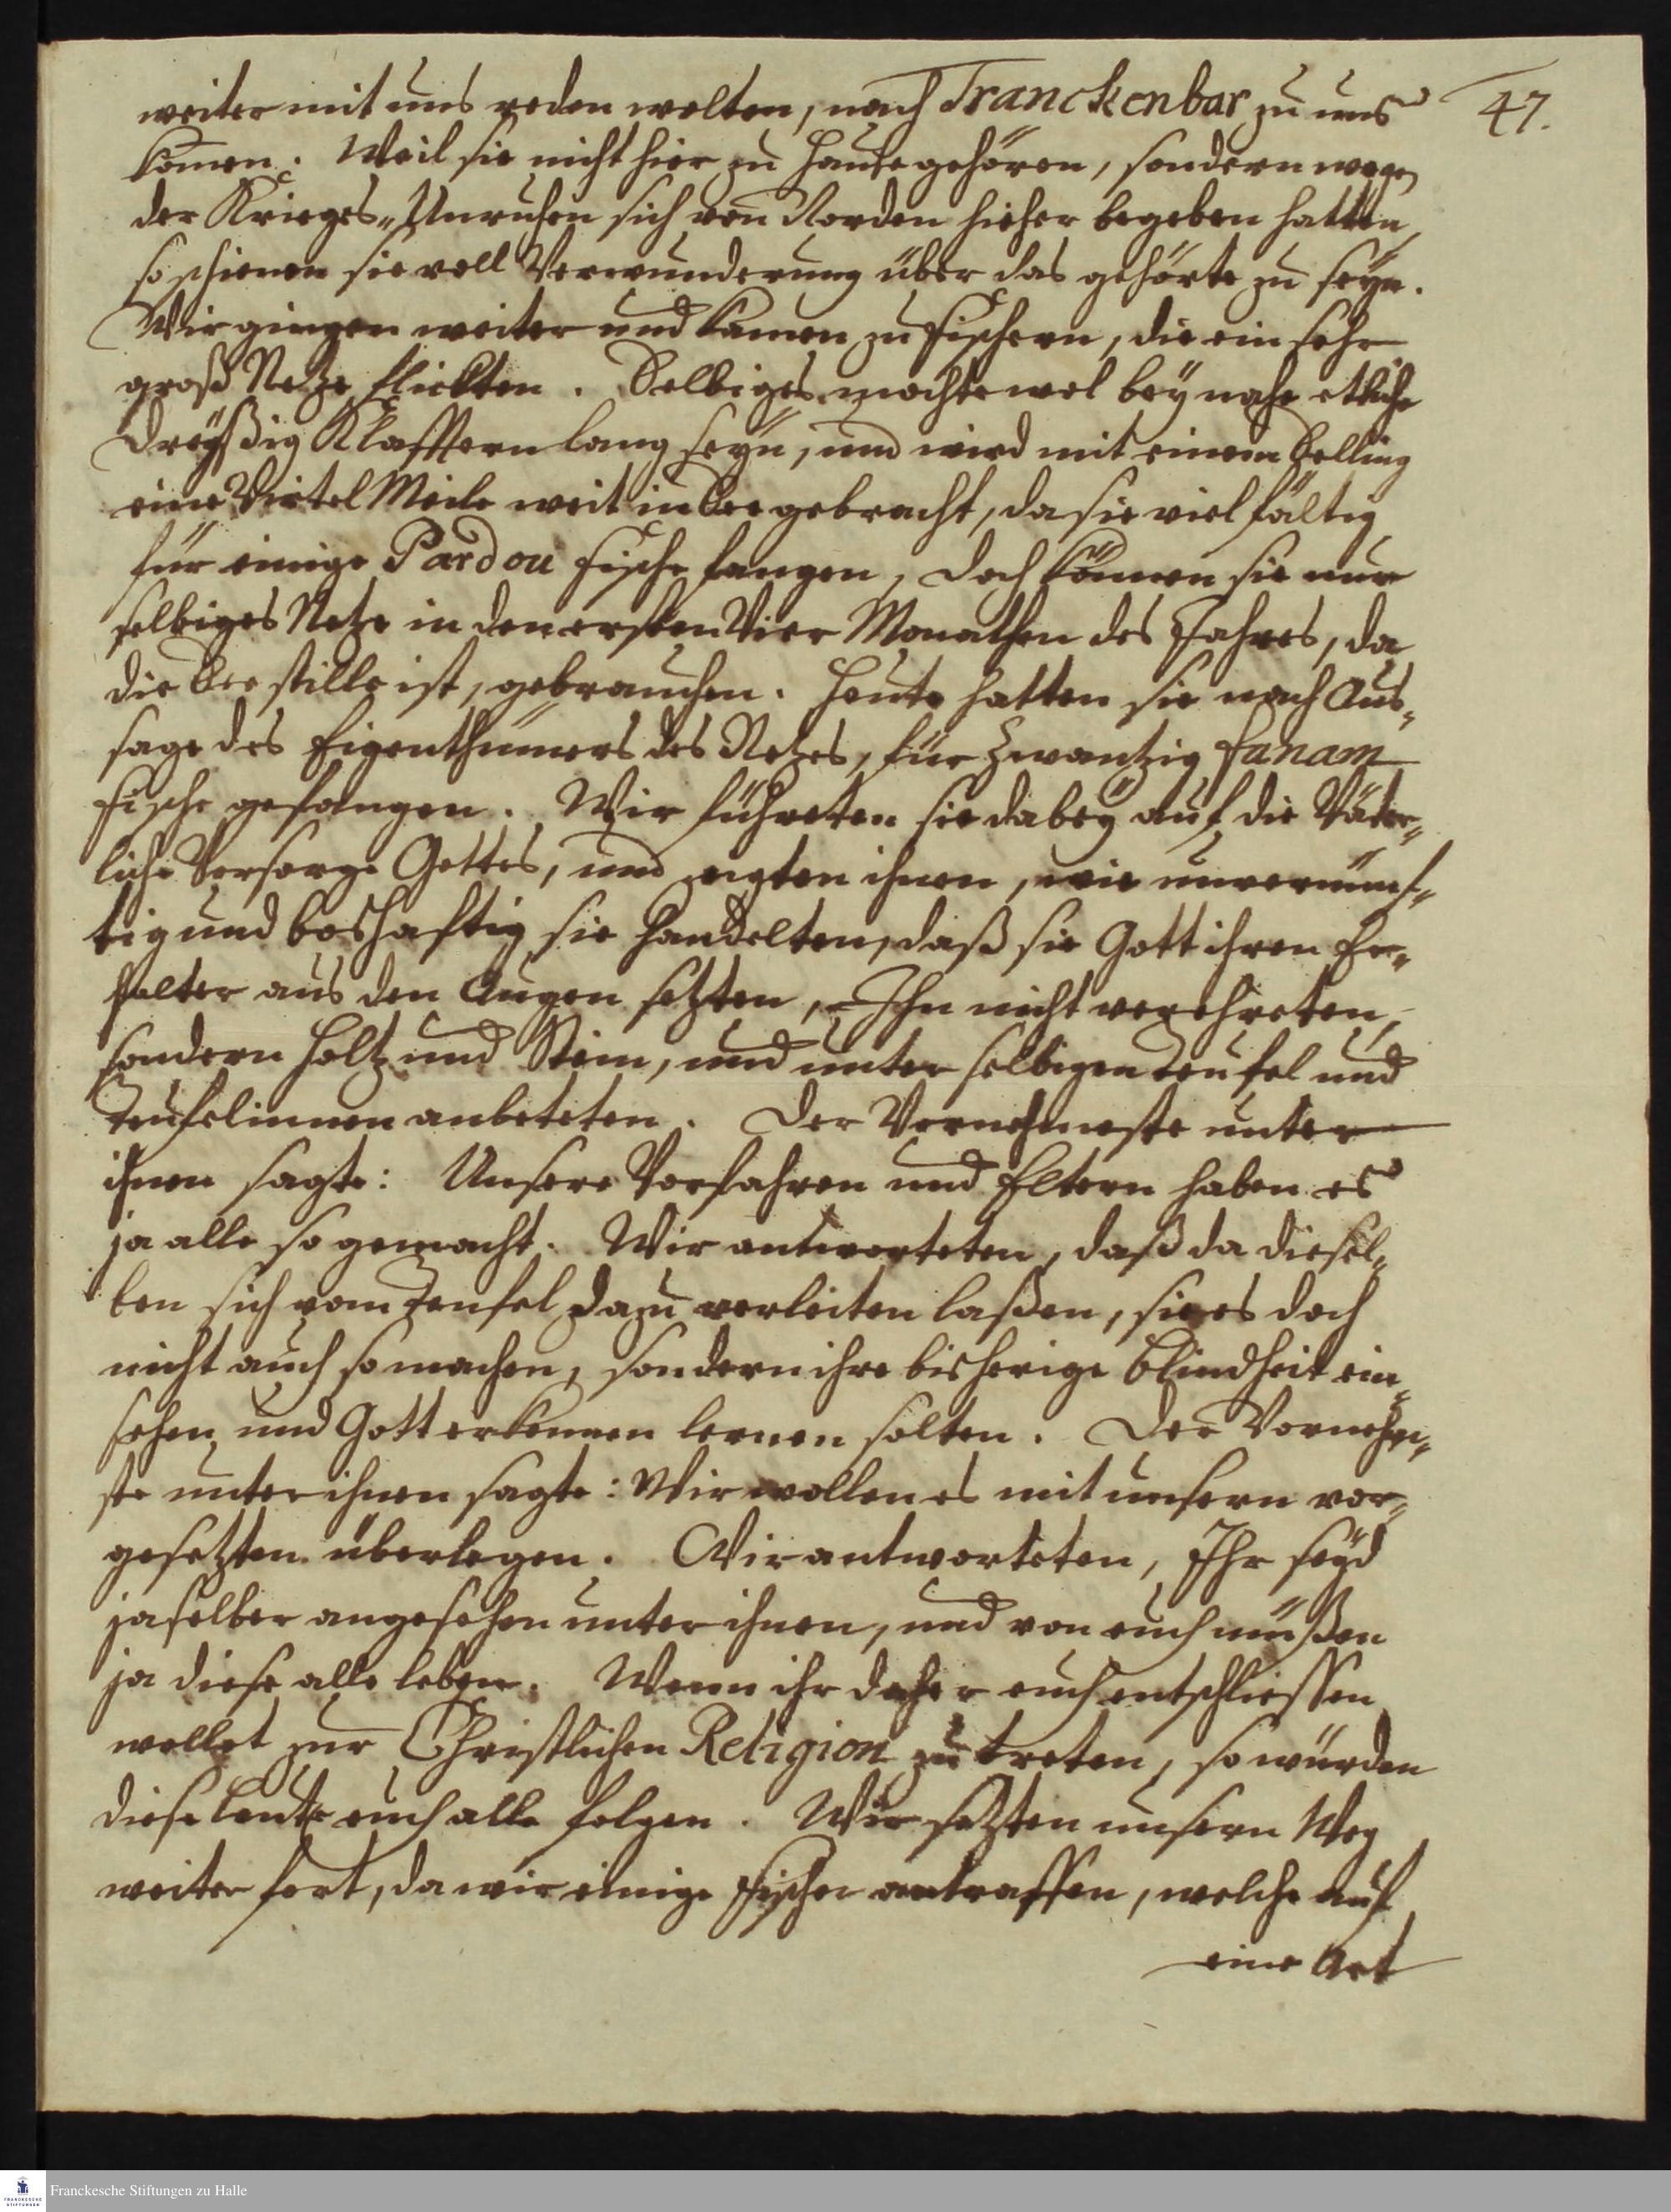 47.
weiter mit uns reden wolten, nach Tranckenbar zu uns
kom̅en. Weil sie nicht hier zu Hause gehören, sondern wegen
der Krieges-Unruhen sich von Norden hieher begeben hatten,
so schienen sie voll Verwunderung über das gehörte zu seyn.
Wir gingen weiter und kamen zu Fischern, die ein sehr
groß Netze flickten. Selbiges mochte wol bey nahe etliche
dreyßig Klafftern lang seyn, und wird mit einem Selling
eine Virtel Meile weit in See gebracht, da sie vielfältig
für einige Pardou Fische fangen, doch können sie nur
selbiges Netze in den ersten Vier Monathen des Jahres, da
die See stille ist, gebrauchen. Heute hatten sie nach Aus-
sage des Eigenthümers des Netzes, für zwantzig fanam
Fische gefangen. Wir führeten sie dabey auf die Väter-
liche Vorsorge Gottes, und zeigten ihnen, wie unvernünf-
tig und boshafftig sie handelten, daß sie Gott ihren Er-
halter aus den Augen setzten, Ihn nicht verehreten,
sondern Holtz und Stein, und unter selbigen Teufel und
Teufelinnen anbeteten. Der Vornehmeste unter
ihnen sagte: Unsere Vorfahren und Eltern haben es
ja alle so gemacht. Wir antworteten, daß da diesel-
ben sich vom Teufel dazu verleiten laßen, sie es doch
nicht auch so machen, sondern ihre bisherige Blindheit ein-
sehen und Gott erkennen lernen solten. Der Vornehm-
ste unter ihnen sagte: Wir wollen es mit unsern vor-
gesetzten überlegen. Wir antworteten, Ihr seyd
ja selber angesehen unter ihnen, und von euch müßen
ja diese alle leben. Wenn ihr daher euch entschliessen
wollet zur Christlichen Religion zu treten, so würden
diese Leute euch alle folgen. Wir setzten unsern Weg
weiter fort, da wir einige Fischer antraffen, welche auf
eine Art
Franckesche Stiftungen zu Halle